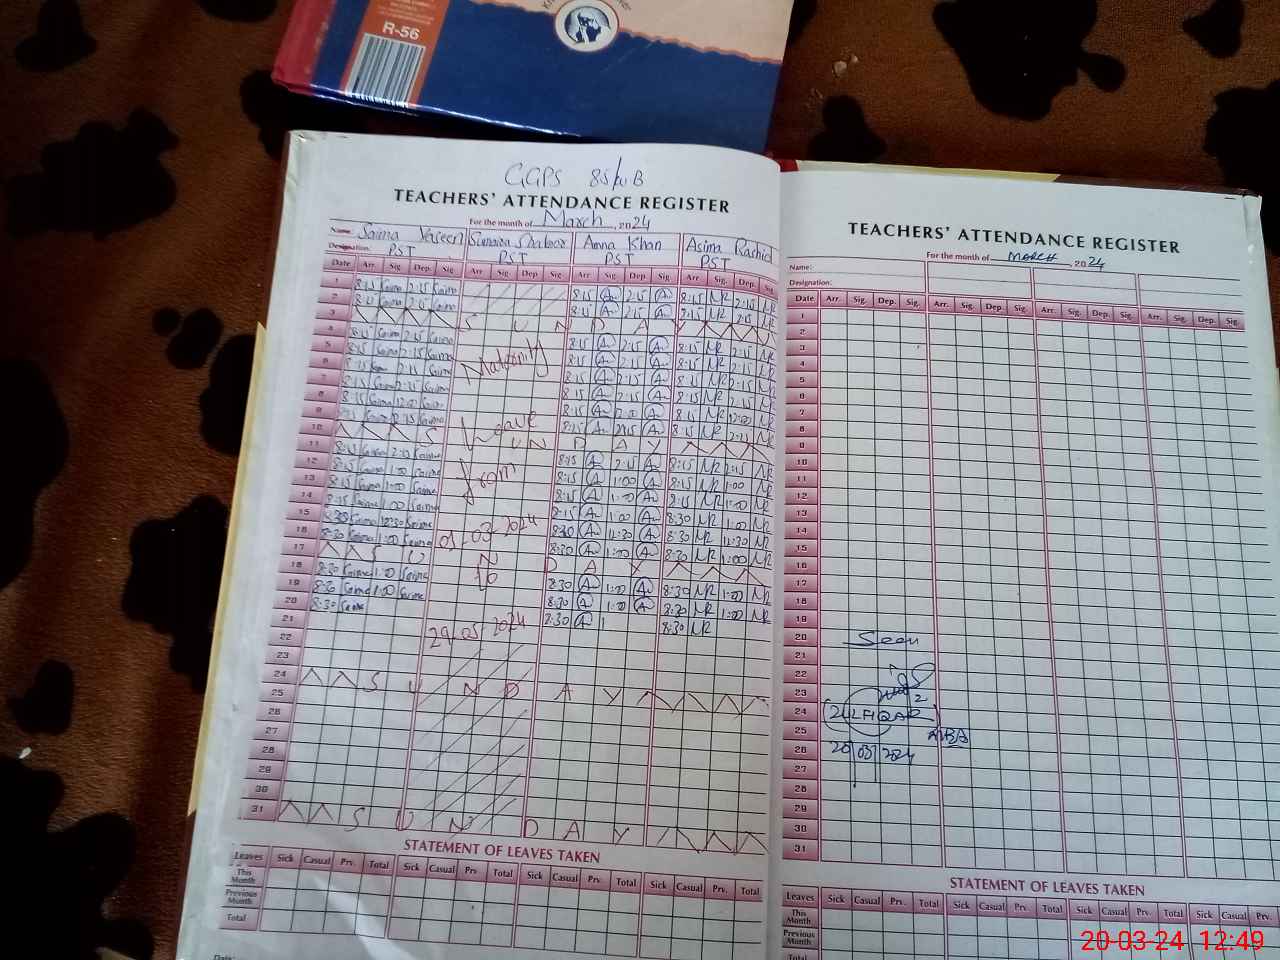 R-56
GGPS 85/WB
TEACHERS' ATTENDANCE REGISTER
For the month of March, 2024
Name: Saima Yaseen Sumaira Shabbir Amna Khan Asima Rashid
Designation: PST PST PST PST
Date Arr. Sig. Dep. Sig Arr Sig. Dep Sig Arr. Sig. Dep. Sig. Arr. Sig. Dep. Sig.
1 8:15 Saima 2:15 Saima 8:15 A 2:15 A 8:15 AR 2:15 AR
2 8:15 Saima 2:15 Saima 8:15 A 2:15 A 8:15 AR 2:15 AR
3 S U N D A Y
4 8:15 Saima 2:15 Saima 8:15 A 2:15 A 8:15 AR 2:15 AR
5 8:15 Saima 2:15 Saima 8:15 A 2:15 A 8:15 AR 2:15 AR
6 8:15 Saima 2:15 Saima 8:15 A 2:15 A 8:15 AR 2:15 AR
7 8:15 Saima 2:15 Saima 8:15 A 2:15 A 8:15 AR 2:15 AR
8 8:15 Saima 12:00 Saima 8:15 A 12:00 A 8:15 AR 12:00 AR
9 8:15 Saima 2:15 Saima 8:15 A 2:15 A 8:15 AR 2:15 AR
10 S U N D A Y
11 8:15 Saima 2:15 Saima 8:15 A 2:15 A 8:15 AR 2:15 AR
12 8:15 Saima 1:00 Saima 8:15 A 1:00 A 8:15 AR 1:00 AR
13 8:15 Saima 1:00 Saima 8:15 A 1:00 A 8:15 AR 1:00 AR
14 8:15 Saima 1:00 Saima 8:15 A 1:00 A 8:30 AR 1:00 AR
15 8:30 Saima 12:30 Saima 8:30 A 12:30 A 8:30 AR 12:30 AR
16 8:30 Saima 1:00 Saima 8:30 A 1:00 A 8:30 AR 1:00 AR
17 S U N D A Y
18 8:30 Saima 1:00 Saima 8:30 A 1:00 A 8:30 AR 1:00 AR
19 8:30 Saima 1:00 Saima 8:30 A 1:00 A 8:30 AR 1:00 AR
20 8:30 Saima 8:30 A 8:30 AR
21
22
23
24 S U N D A Y
25
26
27
28
29
30
31 S U N D A Y
Maternity
Leave
from
01-03-2024
to
29-05-2024
STATEMENT OF LEAVES TAKEN
Leaves Sick Casual Prv. Total Sick Casual Prv Total Sick Casual Prv. Total Sick Casual Prv. Total
This Month
Previous Month
Total
TEACHERS' ATTENDANCE REGISTER
For the month of MARCH, 2024
Name:
Designation:
Date Arr. Sig. Dep. Sig. Arr. Sig. Dep. Sig. Arr. Sig. Dep. Sig. Arr. Sig. Dep. Sig.
1
2
3
4
5
6
7
8
9
10
11
12
13
14
15
16
17
18
19
20
21
22
23
24
25
26
27
28
29
30
31
Seen
ZULFIQAR
20 03 2024
STATEMENT OF LEAVES TAKEN
Leaves Sick Casual Prv. Total Sick Casual Prv. Total Sick Casual Prv. Total Sick Casual Prv.
This Month
Previous Month
Total
20-03-24 12:49